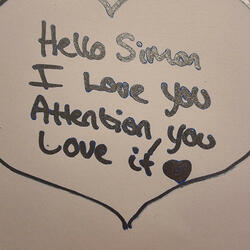 Hello Simon
I Love you
Attention you
Love it